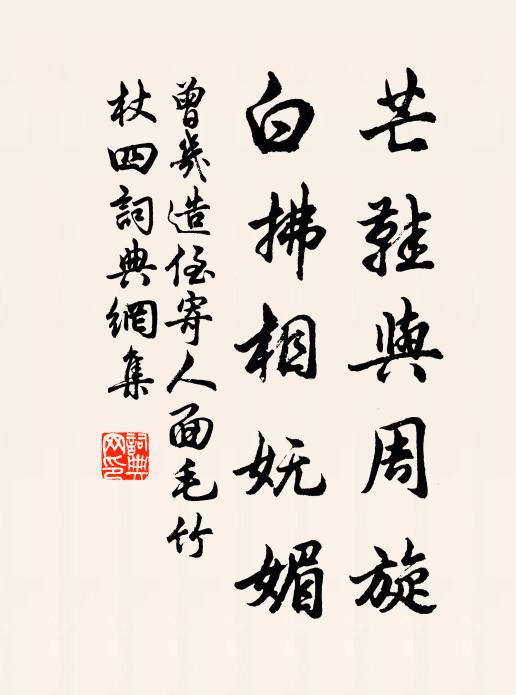 芒鞋與周旋
白拂相妩媚
曾幾造侄寄人面毛竹
杖四詞典網集
詞典网印